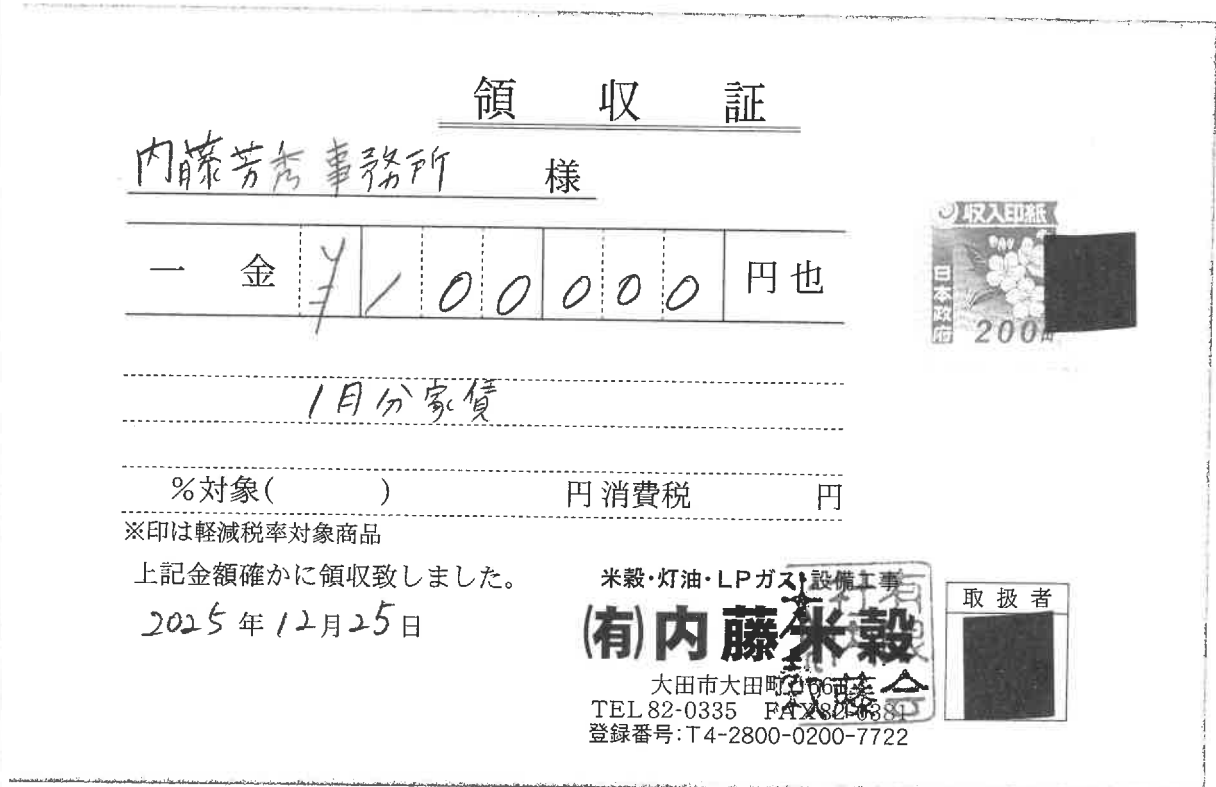 領収証
内藤芳秀事務所 様
一金 ¥100000 円也
収入印紙
日本政府
200円
1月分家賃
%対象( ) 円 消費税 円
※印は軽減税率対象商品
上記金額確かに領収致しました。
2025年12月25日
米穀・灯油・LPガス・設備工事
(有)内藤米穀
大田市大田町
TEL 82-0335 FAX 82-0381
登録番号:T4-2800-0200-7722
取扱者